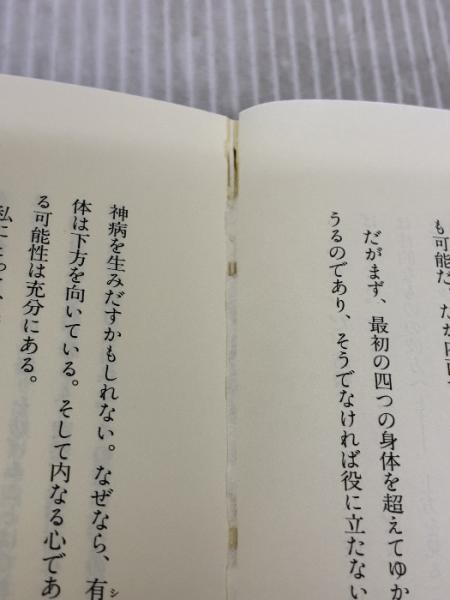 も可能だ。だが
だがまず、最初の四つの身体を超えてゆか
うるのであり、そうでなければ役に立たない
神病を生みだすかもしれない。なぜなら、有
シ
体は下方を向いている。そして内なる心であ
る可能性は充分にある。
私にとって、